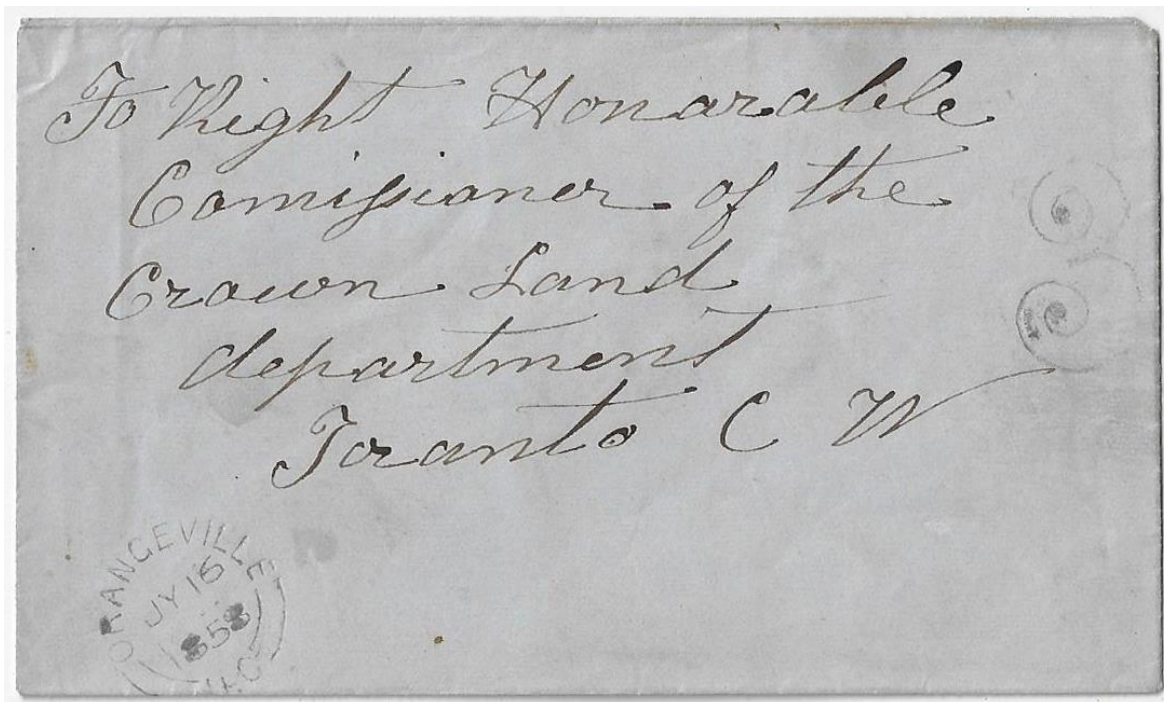 To Right Honarable
Comissioner of the
Crown Land
department
Toranto C W
ORANGEVILLE
JY 16
1858